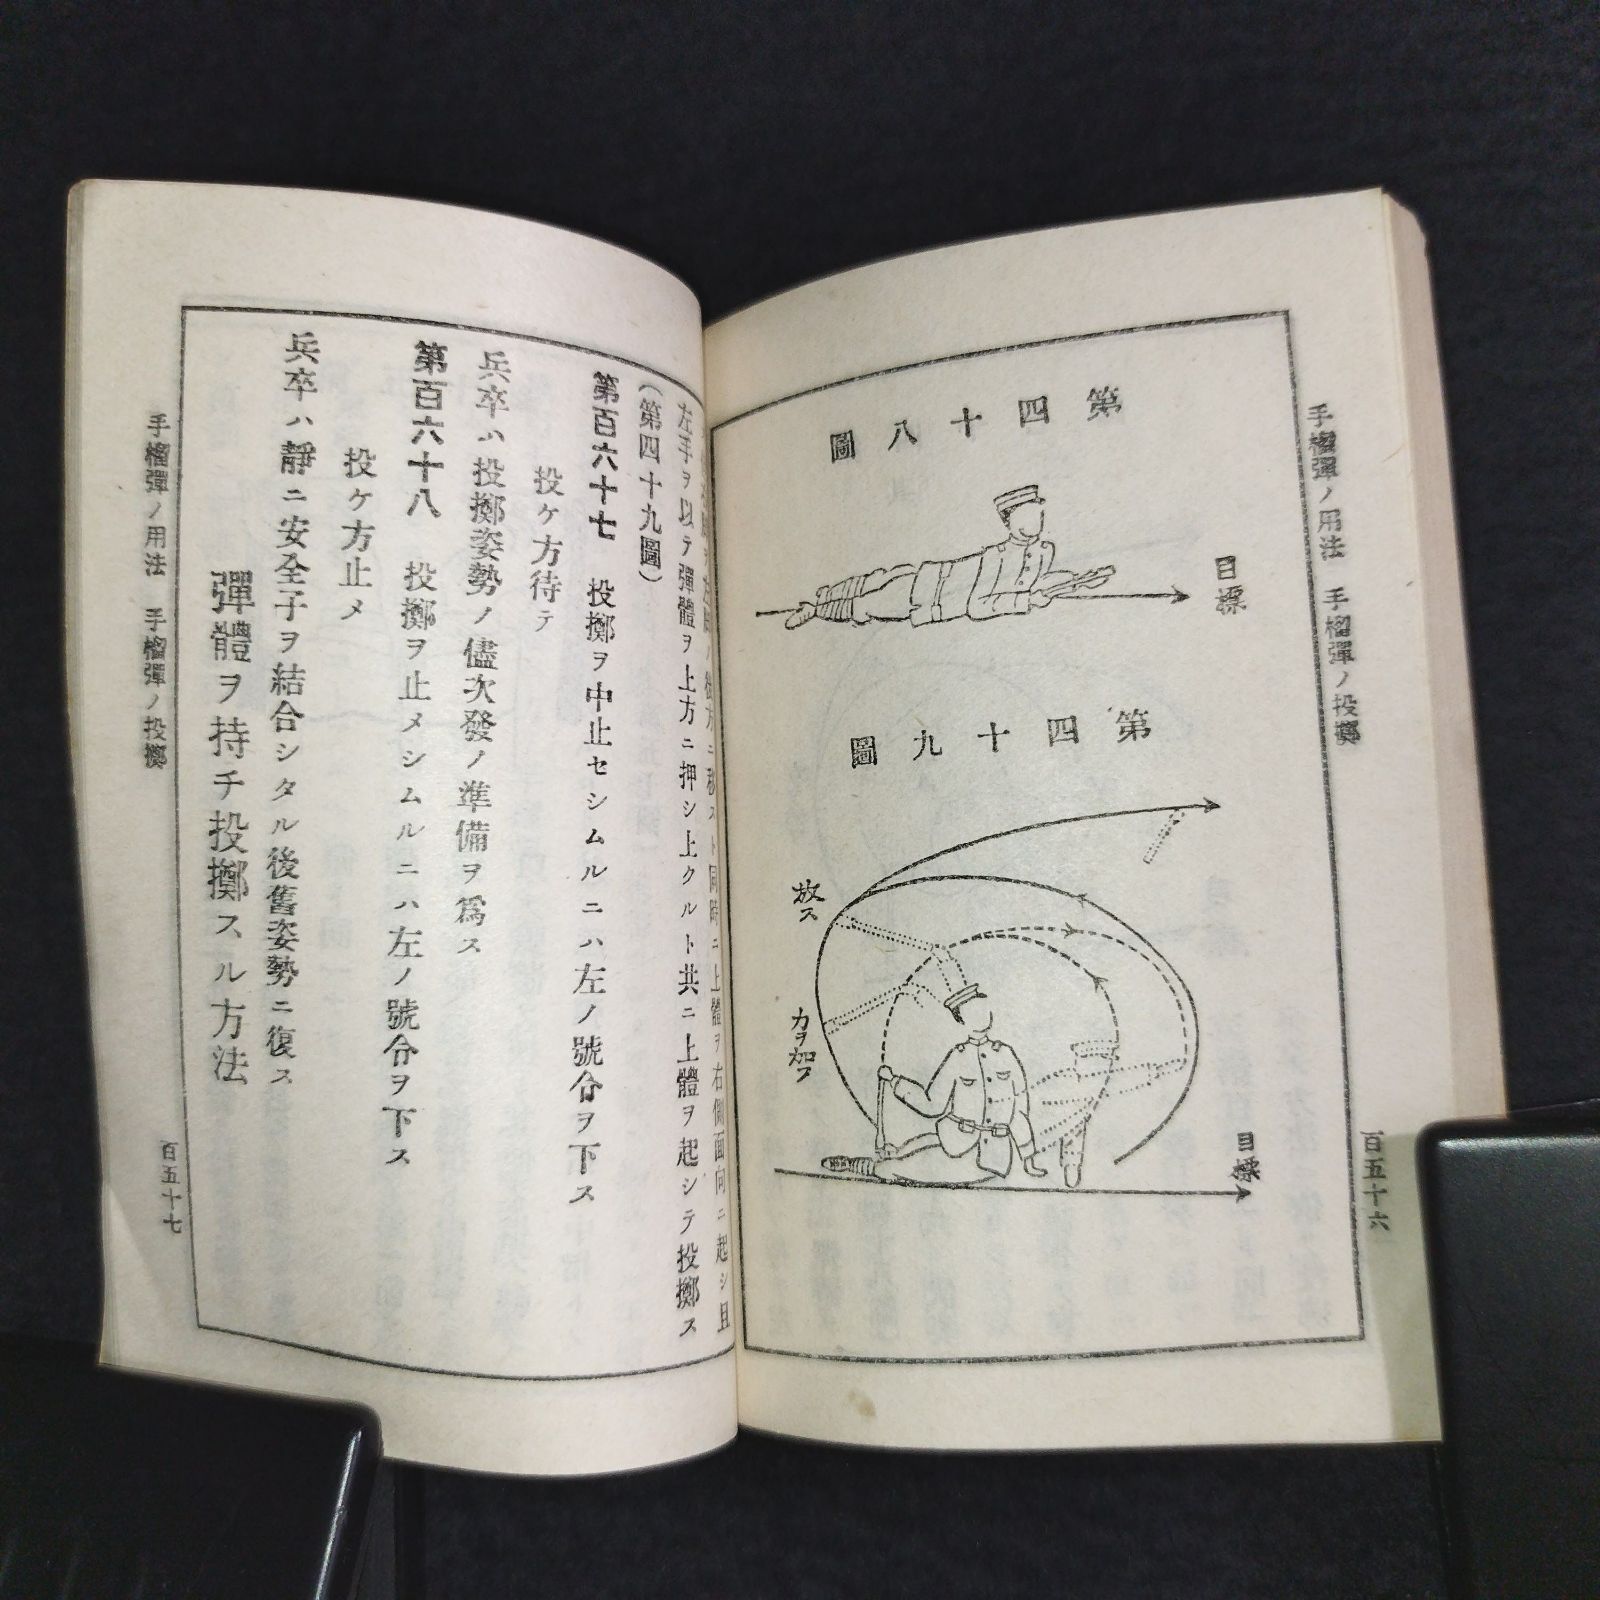 手榴彈ノ用法　手榴彈ノ投擲
百五十六
第四十八圖
目標
第四十九圖
放ス
力ヲ加フ
目標
ノ後方ニ移スト同時ニ上體ヲ右側面向ニ起シ且
左手ヲ以テ彈體ヲ上方ニ押シ上クルト共ニ上體ヲ起シテ投擲ス
（第四十九圖）
第百六十七　投擲ヲ中止セシムルニハ左ノ號令ヲ下ス
投ケ方待テ
兵卒ハ投擲姿勢ノ儘次發ノ準備ヲ爲ス
第百六十八　投擲ヲ止メシムルニハ左ノ號令ヲ下ス
投ケ方止メ
兵卒ハ靜ニ安全子ヲ結合シタル後舊姿勢ニ復ス
彈體ヲ持チ投擲スル方法
手榴彈ノ用法　手榴彈ノ投擲
百五十七